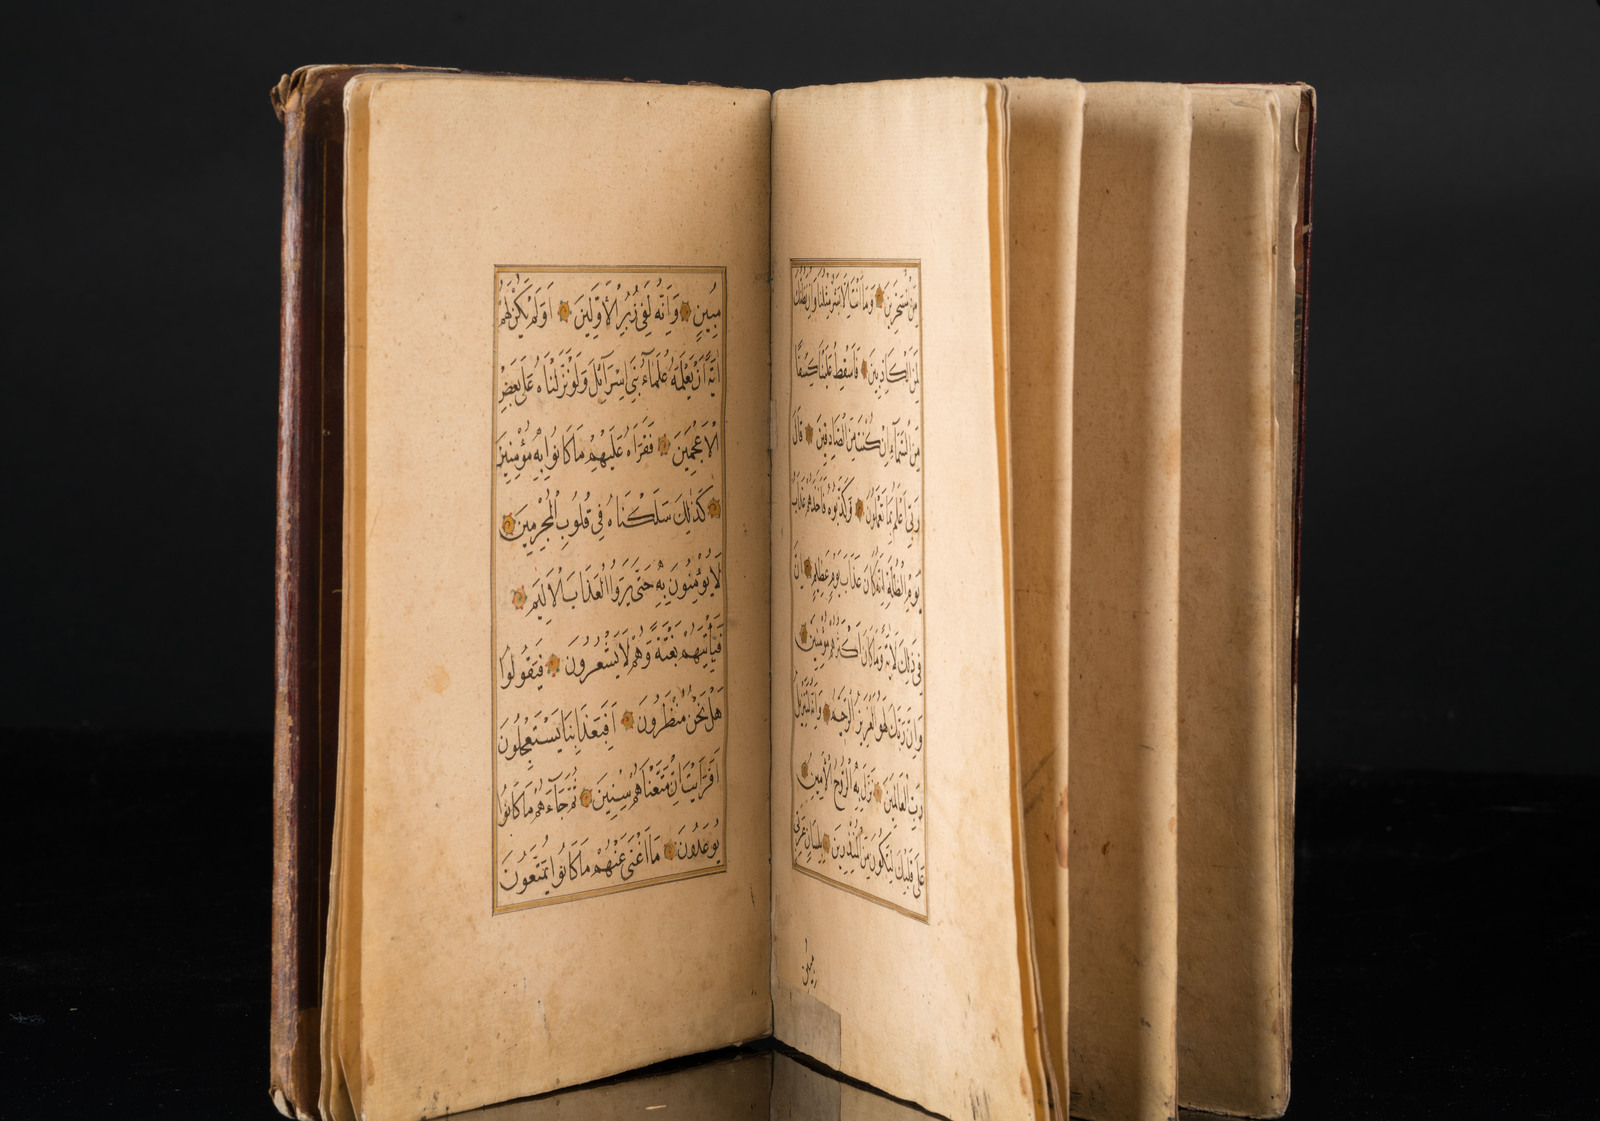 مِنَ الْمُسَحَّرِينَ وَمَا اَنْتَ اِلَّا بَشَرٌ مِثْلُنَا وَاِنْ نَظُنُّكَ
لَمِنَ الْكَاذِبِينَ فَاَسْقِطْ عَلَيْنَا كِسَفًا
مِنَ السَّمَآءِ اِنْ كُنْتَ مِنَ الصَّادِقِينَ قَالَ
رَبِّي اَعْلَمُ بِمَا تَعْمَلُونَ فَكَذَّبُوهُ فَاَخَذَهُمْ عَذَابُ
يَوْمِ الظُّلَّةِ اِنَّهُ كَانَ عَذَابَ يَوْمٍ عَظِيمٍ اِنَّ
فِي ذٰلِكَ لَاٰيَةً وَمَا كَانَ اَكْثَرُهُمْ مُؤْمِنِينَ
وَاِنَّ رَبَّكَ لَهُوَ الْعَزِيزُ الرَّحِيمُ وَاِنَّهُ لَتَنْزِيلُ
رَبِّ الْعَالَمِينَ نَزَلَ بِهِ الرُّوحُ الْاَمِينُ
عَلٰى قَلْبِكَ لِتَكُونَ مِنَ الْمُنْذِرِينَ بِلِسَانٍ عَرَبِيٍّ
مُبِينٍ
مُبِينٍ وَاِنَّهُ لَفِي زُبُرِ الْاَوَّلِينَ اَوَلَمْ يَكُنْ لَهُمْ
اٰيَةً اَنْ يَعْلَمَهُ عُلَمٰٓاءُ بَنِي اِسْرَآئِلَ وَلَوْ نَزَّلْنَاهُ عَلٰى بَعْضِ
الْاَعْجَمِينَ فَقَرَاَهُ عَلَيْهِمْ مَا كَانُوا بِهِ مُؤْمِنِينَ
كَذٰلِكَ سَلَكْنَاهُ فِي قُلُوبِ الْمُجْرِمِينَ
لَا يُؤْمِنُونَ بِهِ حَتّٰى يَرَوُا الْعَذَابَ الْاَلِيمَ
فَيَاْتِيَهُمْ بَغْتَةً وَهُمْ لَا يَشْعُرُونَ فَيَقُولُوا
هَلْ نَحْنُ مُنْظَرُونَ اَفَبِعَذَابِنَا يَسْتَعْجِلُونَ
اَفَرَاَيْتَ اِنْ مَتَّعْنَاهُمْ سِنِينَ ثُمَّ جَآءَهُمْ مَا كَانُوا
يُوعَدُونَ مَا اَغْنٰى عَنْهُمْ مَا كَانُوا يُمَتَّعُونَ